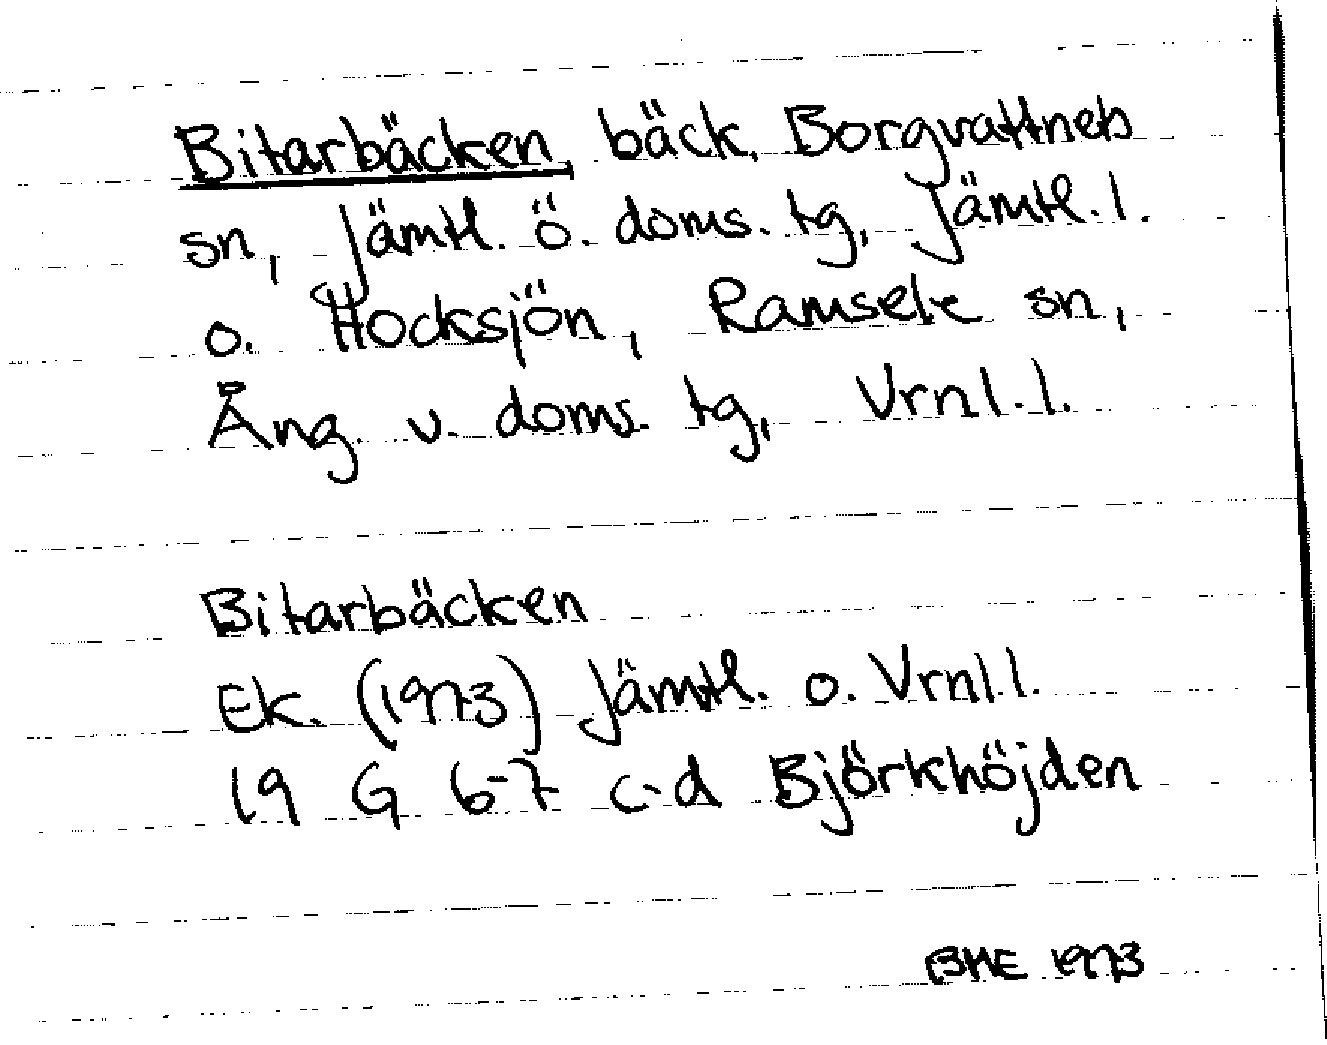 Bitarbäcken, bäck, Borgvattnets
sn, Jämtl. ö. doms. tg, Jämtl. l.
o. Hocksjön, Ramsele sn,
Ång. v. doms. tg, Vrnl. l.
Bitarbäcken
Ek. (1973) Jämtl. o. Vrnl. l.
19 G 6-7 c-d Björkhöjden
BME 1973